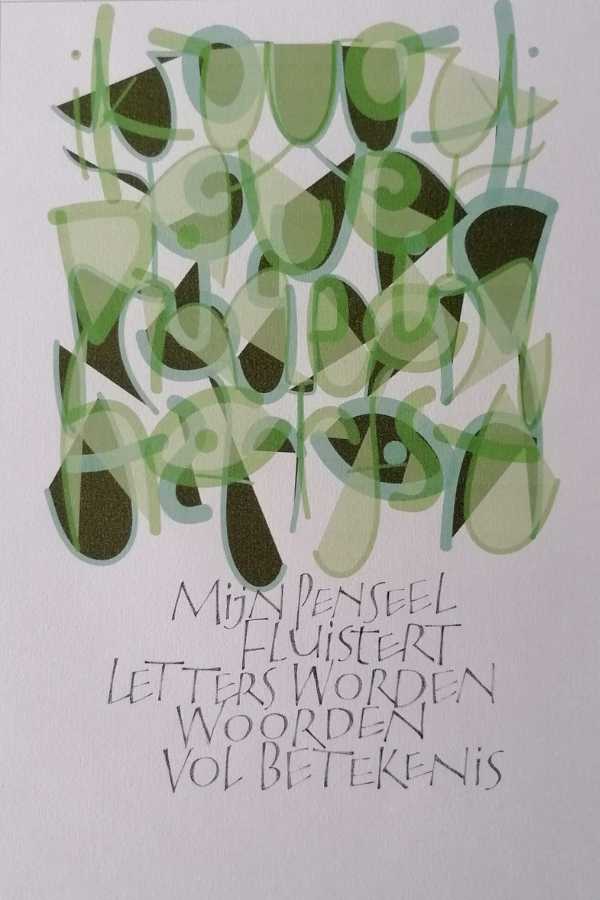 MijN PENSEEL
FLUiStERT
LETTERS WORDEN
WOORDEN
VOL BETEKENiS